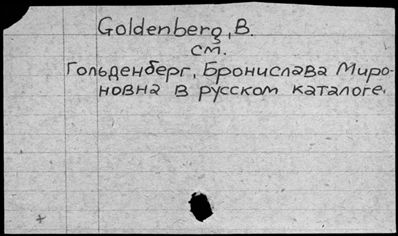 Goldenberg, B.
см.
Гольденберг, Бронислава Миро-
новна в русском каталоге.